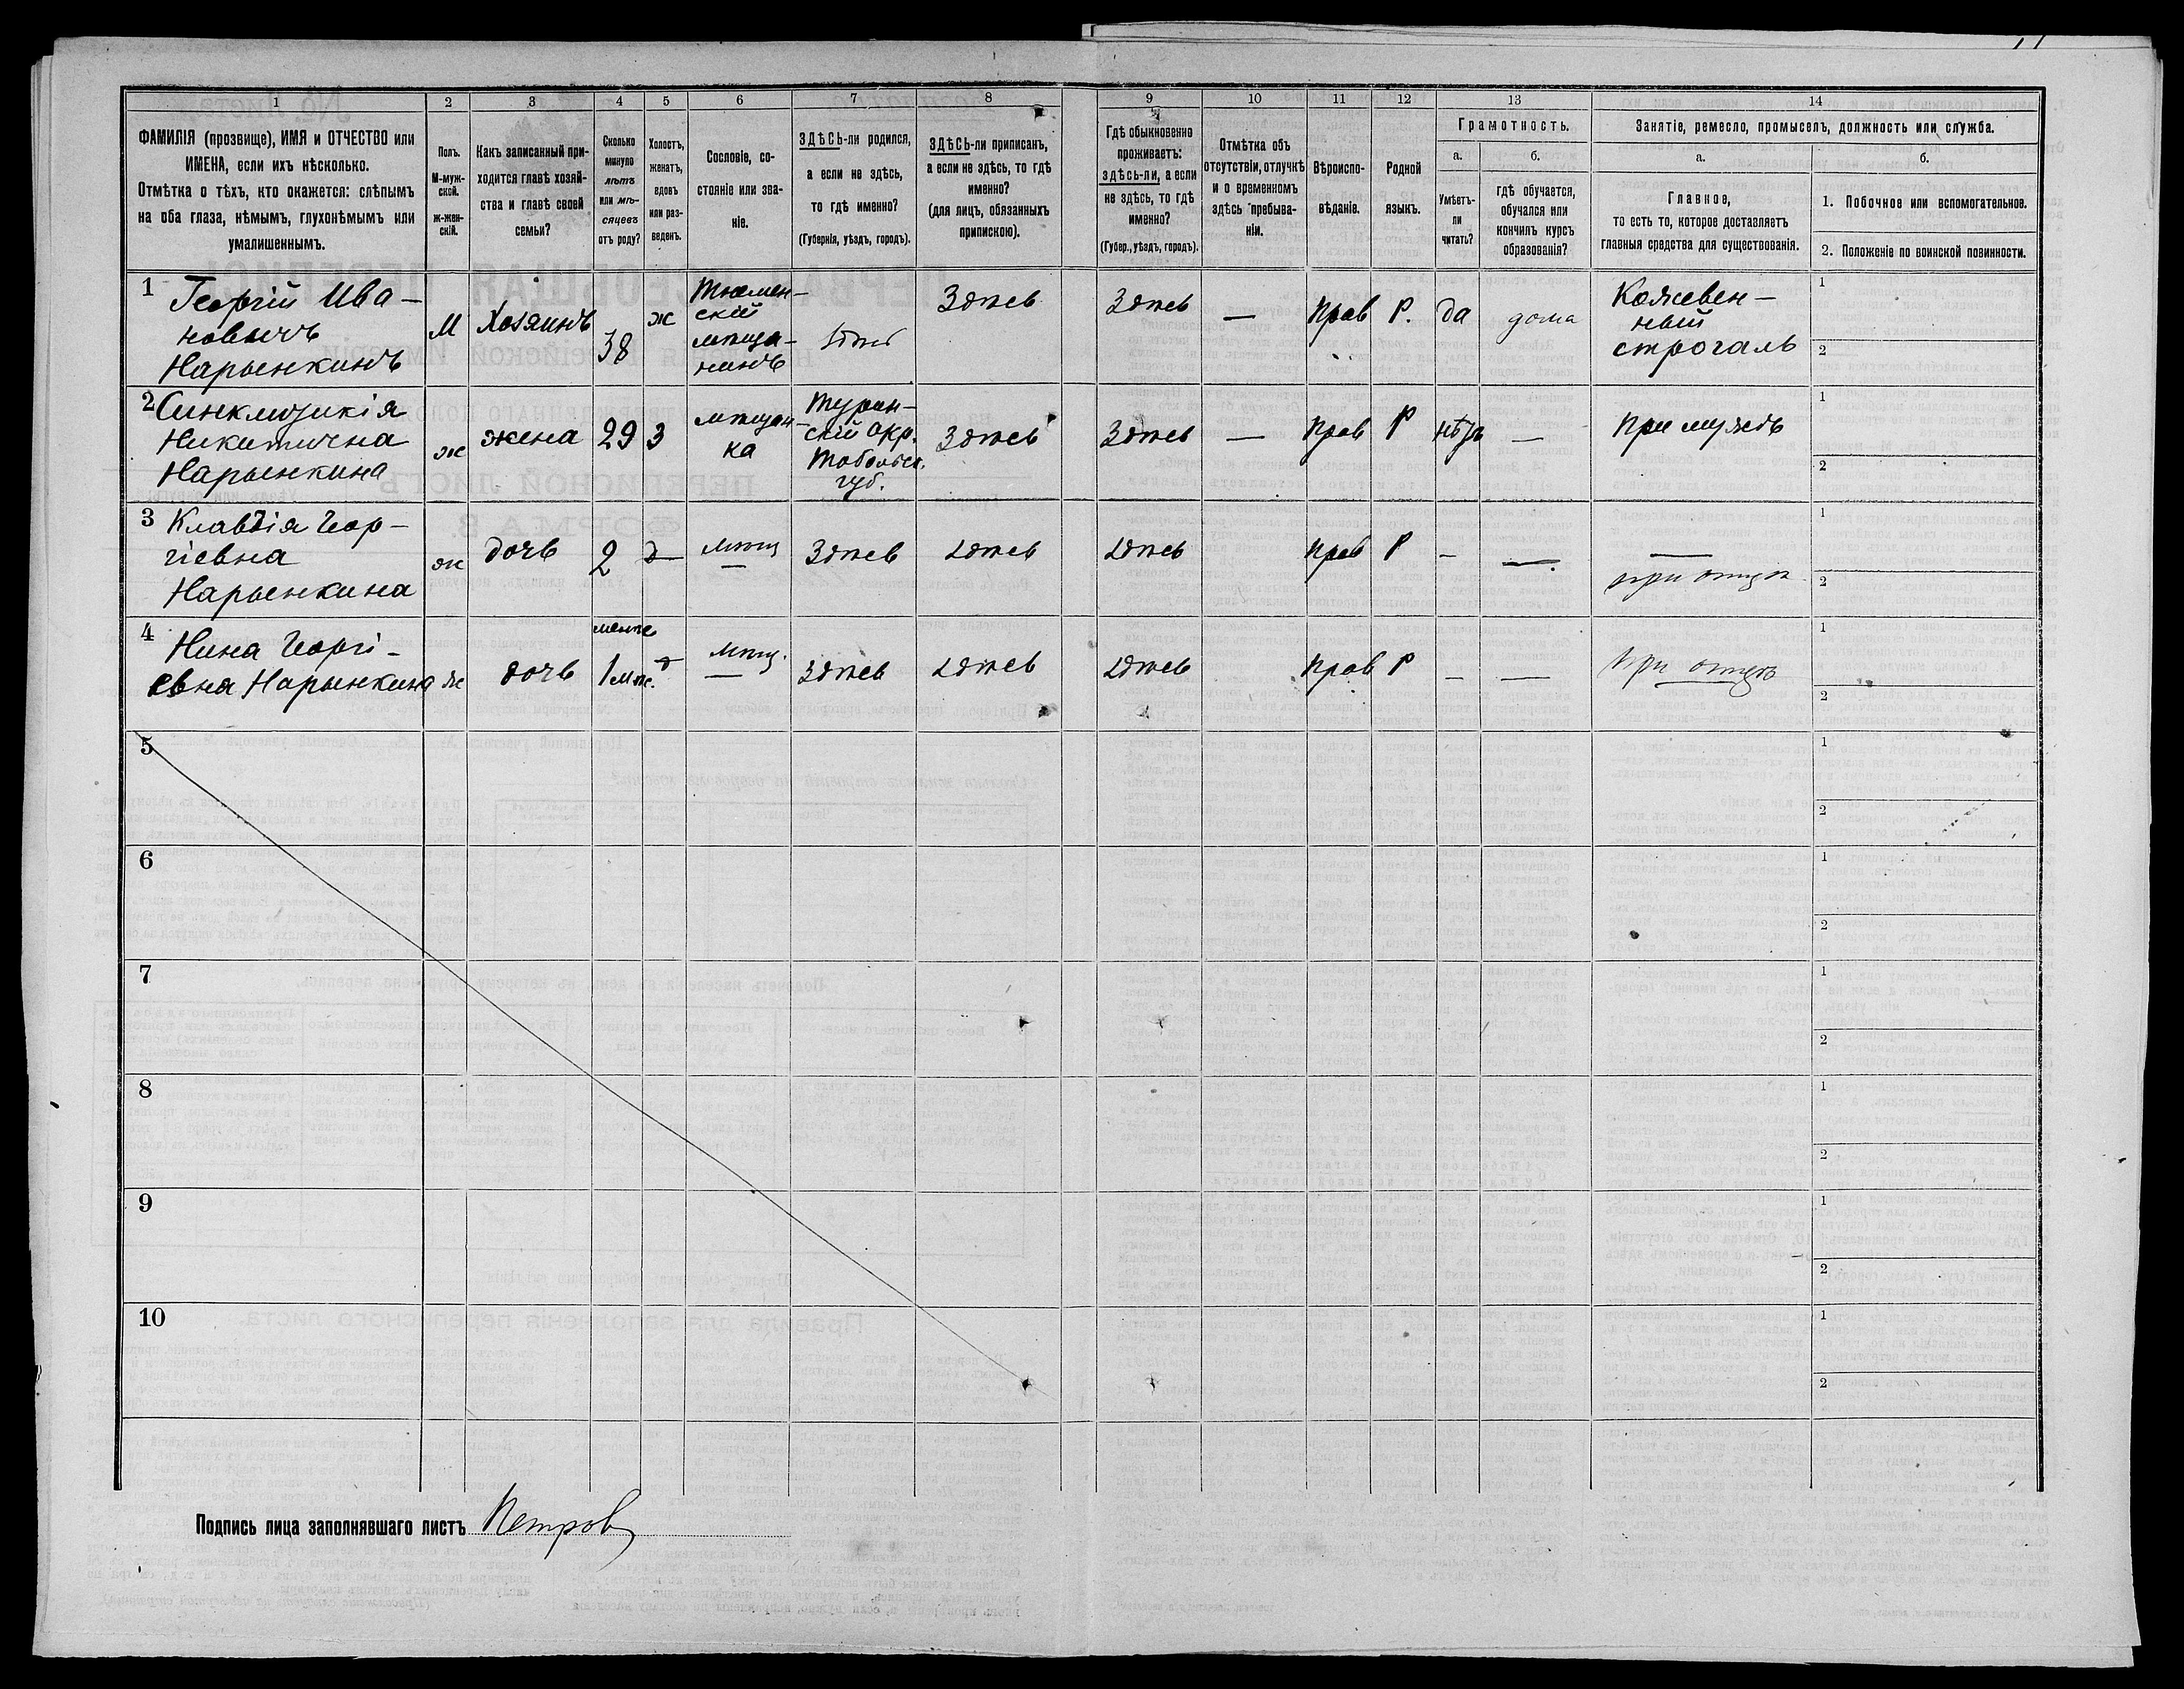 1 2 3 4 5 6 7 8 9 10 11 12 13 14
ФАМИЛІЯ (прозвище), ИМЯ и ОТЧЕСТВО или
ИМЕНА, если ихъ нѣсколько.
Отмѣтка о тѣхъ, кто окажется: слѣпымъ
на оба глаза, нѣмымъ, глухонѣмымъ или
умалишеннымъ.
Полъ.
М-муж-
ской.
ж-жен-
скій.
Какъ записанный при-
ходится главѣ хозяй-
ства и главѣ своей
семьи?
Сколько
минуло
лѣтъ
или мѣ-
сяцевъ
отъ роду?
Холостъ,
женатъ,
вдовъ
или раз-
веденъ.
Сословіе, со-
стояніе или зва-
ніе.
ЗДѢСЬ-ли родился,
а если не здѣсь,
то гдѣ именно?
(Губернія, уѣздъ, городъ).
ЗДѢСЬ-ли приписанъ,
а если не здѣсь, то гдѣ
именно?
(для лицъ, обязанныхъ
припискою).
Гдѣ обыкновенно
проживаетъ:
здѣсь-ли, а если
не здѣсь, то гдѣ
именно?
(Губер., уѣздъ, городъ).
Отмѣтка объ
отсутствіи, отлучкѣ
и о временномъ
здѣсь пребыва-
ніи.
Вѣроиспо-
вѣданіе.
Родной
языкъ.
Грамотность.
а.
Умѣетъ-
ли
читать?
б.
гдѣ обучается,
обучался или
кончилъ курсъ
образованія?
Занятіе, ремесло, промыселъ, должность или служба.
а.
Главное,
то есть то, которое доставляетъ
главныя средства для существованія.
б.
1. Побочное или вспомогательное.
2. Положеніе по воинской повинности.
1
Георгій Ива-
новычъ
Нарынкинъ
М
Хозяинъ
38
ж
Тюмен-
скій
мѣща-
нинъ
Здѣсь
Здѣсь
—
Прав
Р.
да
дома
Кожевен-
ный
строгаль
1
2
2
Синклитикія
Никитична
Нарынкина
ж
жена
29
З
мѣщан-
ка
Турин-
скій окр.
Тобольск.
губ.
Здѣсь
Здѣсь
—
Прав
Р
нѣтъ
—
При мужѣ
1
2
3
Клавдія Геор-
гіевна
Нарынкина
ж
дочь
2
д
мѣщ
—
Здѣсь
Здѣсь
Здѣсь
Прав
Р
—
—
—
при отцѣ
1
2
4
Нина Георгі-
евна Нарынкина
ж
дочь
менѣе
1 мѣс.
д
мѣщ.
—
Здѣсь
Здѣсь
Здѣсь
Прав
Р
—
—
При отцѣ
1
2
5
1
2
6
1
2
7
1
2
8
1
2
9
1
2
10
1
2
Подпись лица заполнявшаго листъ Петров